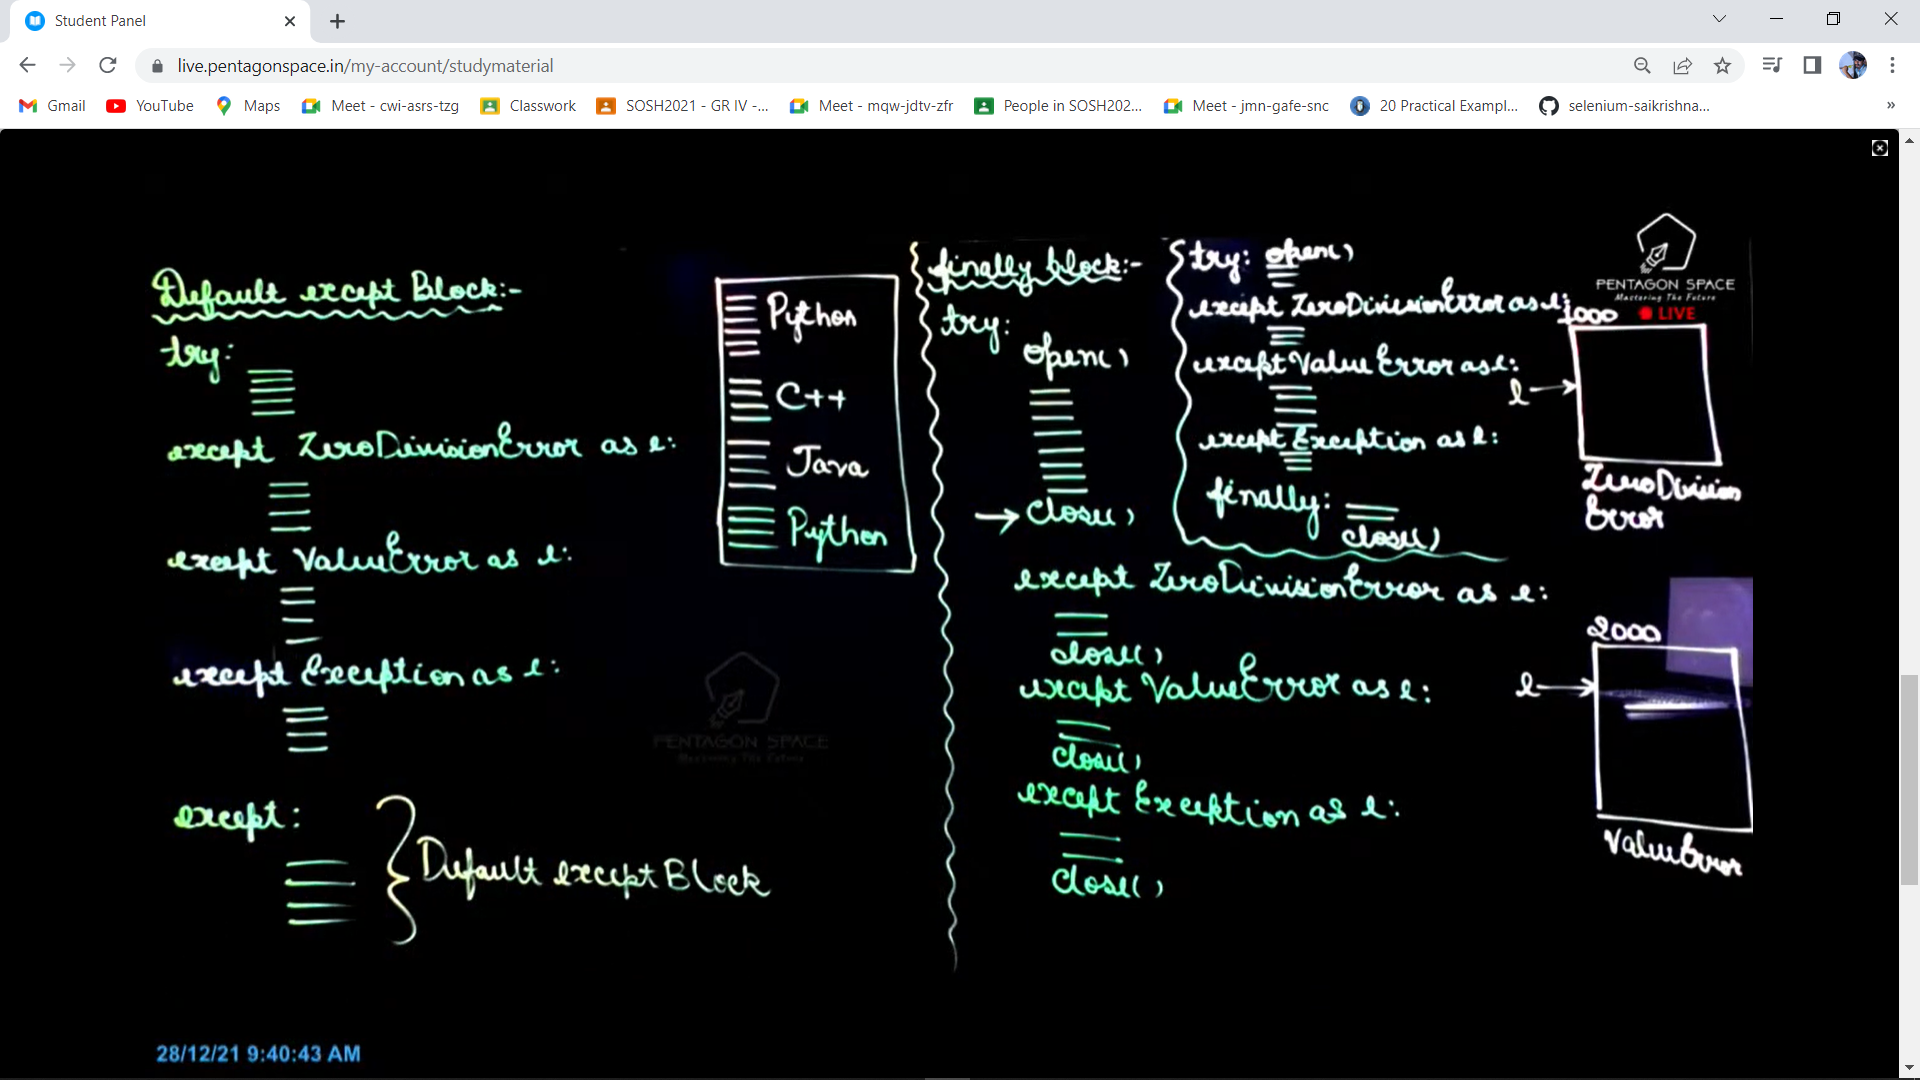 Student Panel
live.pentagonspace.in/my-account/studymaterial
Gmail
YouTube
Maps
Meet - cwi-asrs-tzg
Classwork
SOSH2021 - GR IV -...
Meet - mqw-jdtv-zfr
People in SOSH202...
Meet - jmn-gafe-snc
20 Practical Exampl...
selenium-saikrishna...
»
Default except Block:-
try:
except ZeroDivisionError as e:
except ValueError as e:
except Exception as e:
except:
Default except Block
Python
C++
Java
Python
finally block:-
try:
open()
close()
except ZeroDivisionError as e:
close()
except ValueError as e:
close()
except Exception as e:
close()
try: open()
except ZeroDivisionError as e:
except ValueError as e:
except Exception as e:
finally:
close()
PENTAGON SPACE
Mastering The Future
LIVE
1000
e
ZeroDivision
Error
2000
e
ValueError
PENTAGON SPACE
Mastering The Future
28/12/21 9:40:43 AM